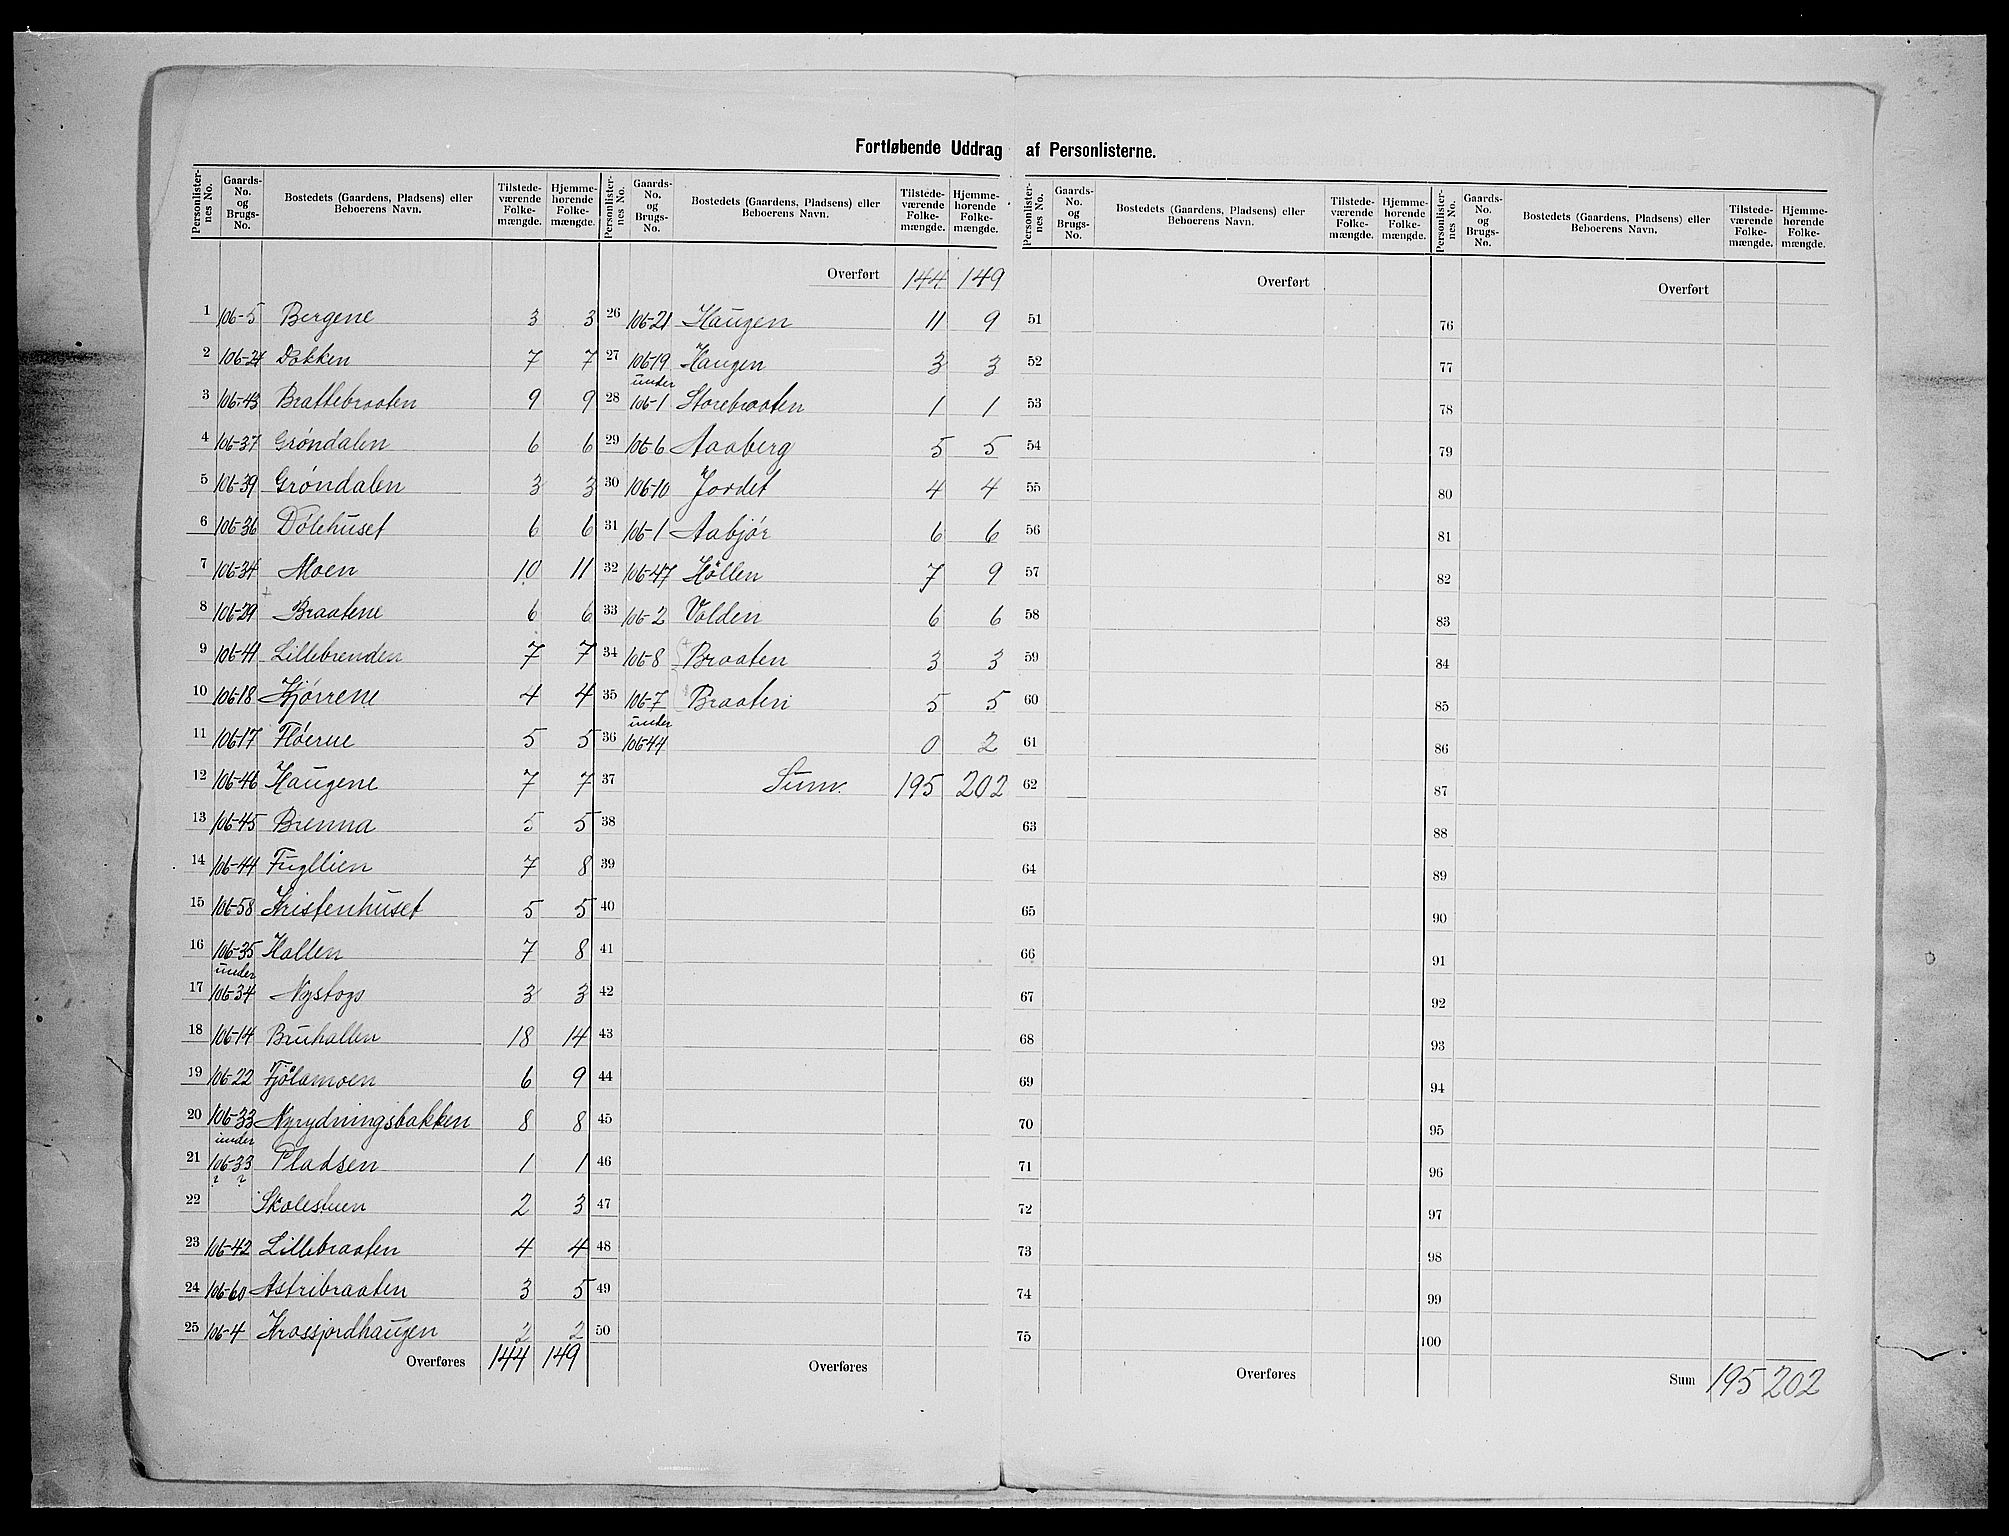 Fortløbende Uddrag af Personlisterne.
Personlister-nes No. Gaards-No. og Brugs-No. Bostedets (Gaardens, Pladsens) eller Beboerens Navn. Tilstede-værende Folke-mængde. Hjemme-hørende Folke-mængde.
1 106-5 Bergene 3 3
2 106-24 Dokken 7 7
3 106-43 Brattebraaten 9 9
4 106-37 Grøndalen 6 6
5 106-39 Grøndalen 3 3
6 106-36 Dølehuset 6 6
7 106-34 Moen 10 11
8 106-29 + Braatene 6 6
9 106-41 Lillebrenden 7 7
10 106-18 Kjørrene 4 4
11 106-17 Fløerne 5 5
12 106-46 Haugene 7 7
13 106-45 Brenna 5 5
14 106-44 Fugllien 7 8
15 106-58 Kristenhuset 5 5
16 106-35 Hallen 7 8
17 under 106-34 Nystogo 3 3
18 106-14 Bruhallen 18 14
19 106-22 Fjølamoen 6 9
20 106-33 Nyrydningsbakken 8 8
21 under 106-33 Pladsen 1 1
22 ? ? Skolestuen 2 3
23 106-42 Lillebraaten 4 4
24 106-60 Astribraaten 3 5
25 106-4 Krossjordhaugen 2 2
Overføres 144 149
Personlister-nes No. Gaards-No. og Brugs-No. Bostedets (Gaardens, Pladsens) eller Beboerens Navn. Tilstede-værende Folke-mængde. Hjemme-hørende Folke-mængde.
Overført 144 149
26 106-21 Haugen 11 9
27 106-19 Haugen 3 3
28 under 106-1 Storebraaten 1 1
29 106-6 Aaberg 5 5
30 106-10 Jordet 4 4
31 106-1 Aabjør 6 6
32 106-47 Høllen 7 9
33 106-2 Volden 6 6
34 106-8 + Braaten 3 3
35 106-7 Braaten 5 5
36 under 106-44 0 2
37 Sum. 195 202
38
39
40
41
42
43
44
45
46
47
48
49
50
Overføres
Personlister-nes No. Gaards-No. og Brugs-No. Bostedets (Gaardens, Pladsens) eller Beboerens Navn. Tilstede-værende Folke-mængde. Hjemme-hørende Folke-mængde.
Overført
51
52
53
54
55
56
57
58
59
60
61
62
63
64
65
66
67
68
69
70
71
72
73
74
75
Overføres
Personlister-nes No. Gaards-No. og Brugs-No. Bostedets (Gaardens, Pladsens) eller Beboerens Navn. Tilstede-værende Folke-mængde. Hjemme-hørende Folke-mængde.
Overført
76
77
78
79
80
81
82
83
84
85
86
87
88
89
90
91
92
93
94
95
96
97
98
99
100
Sum 195 202